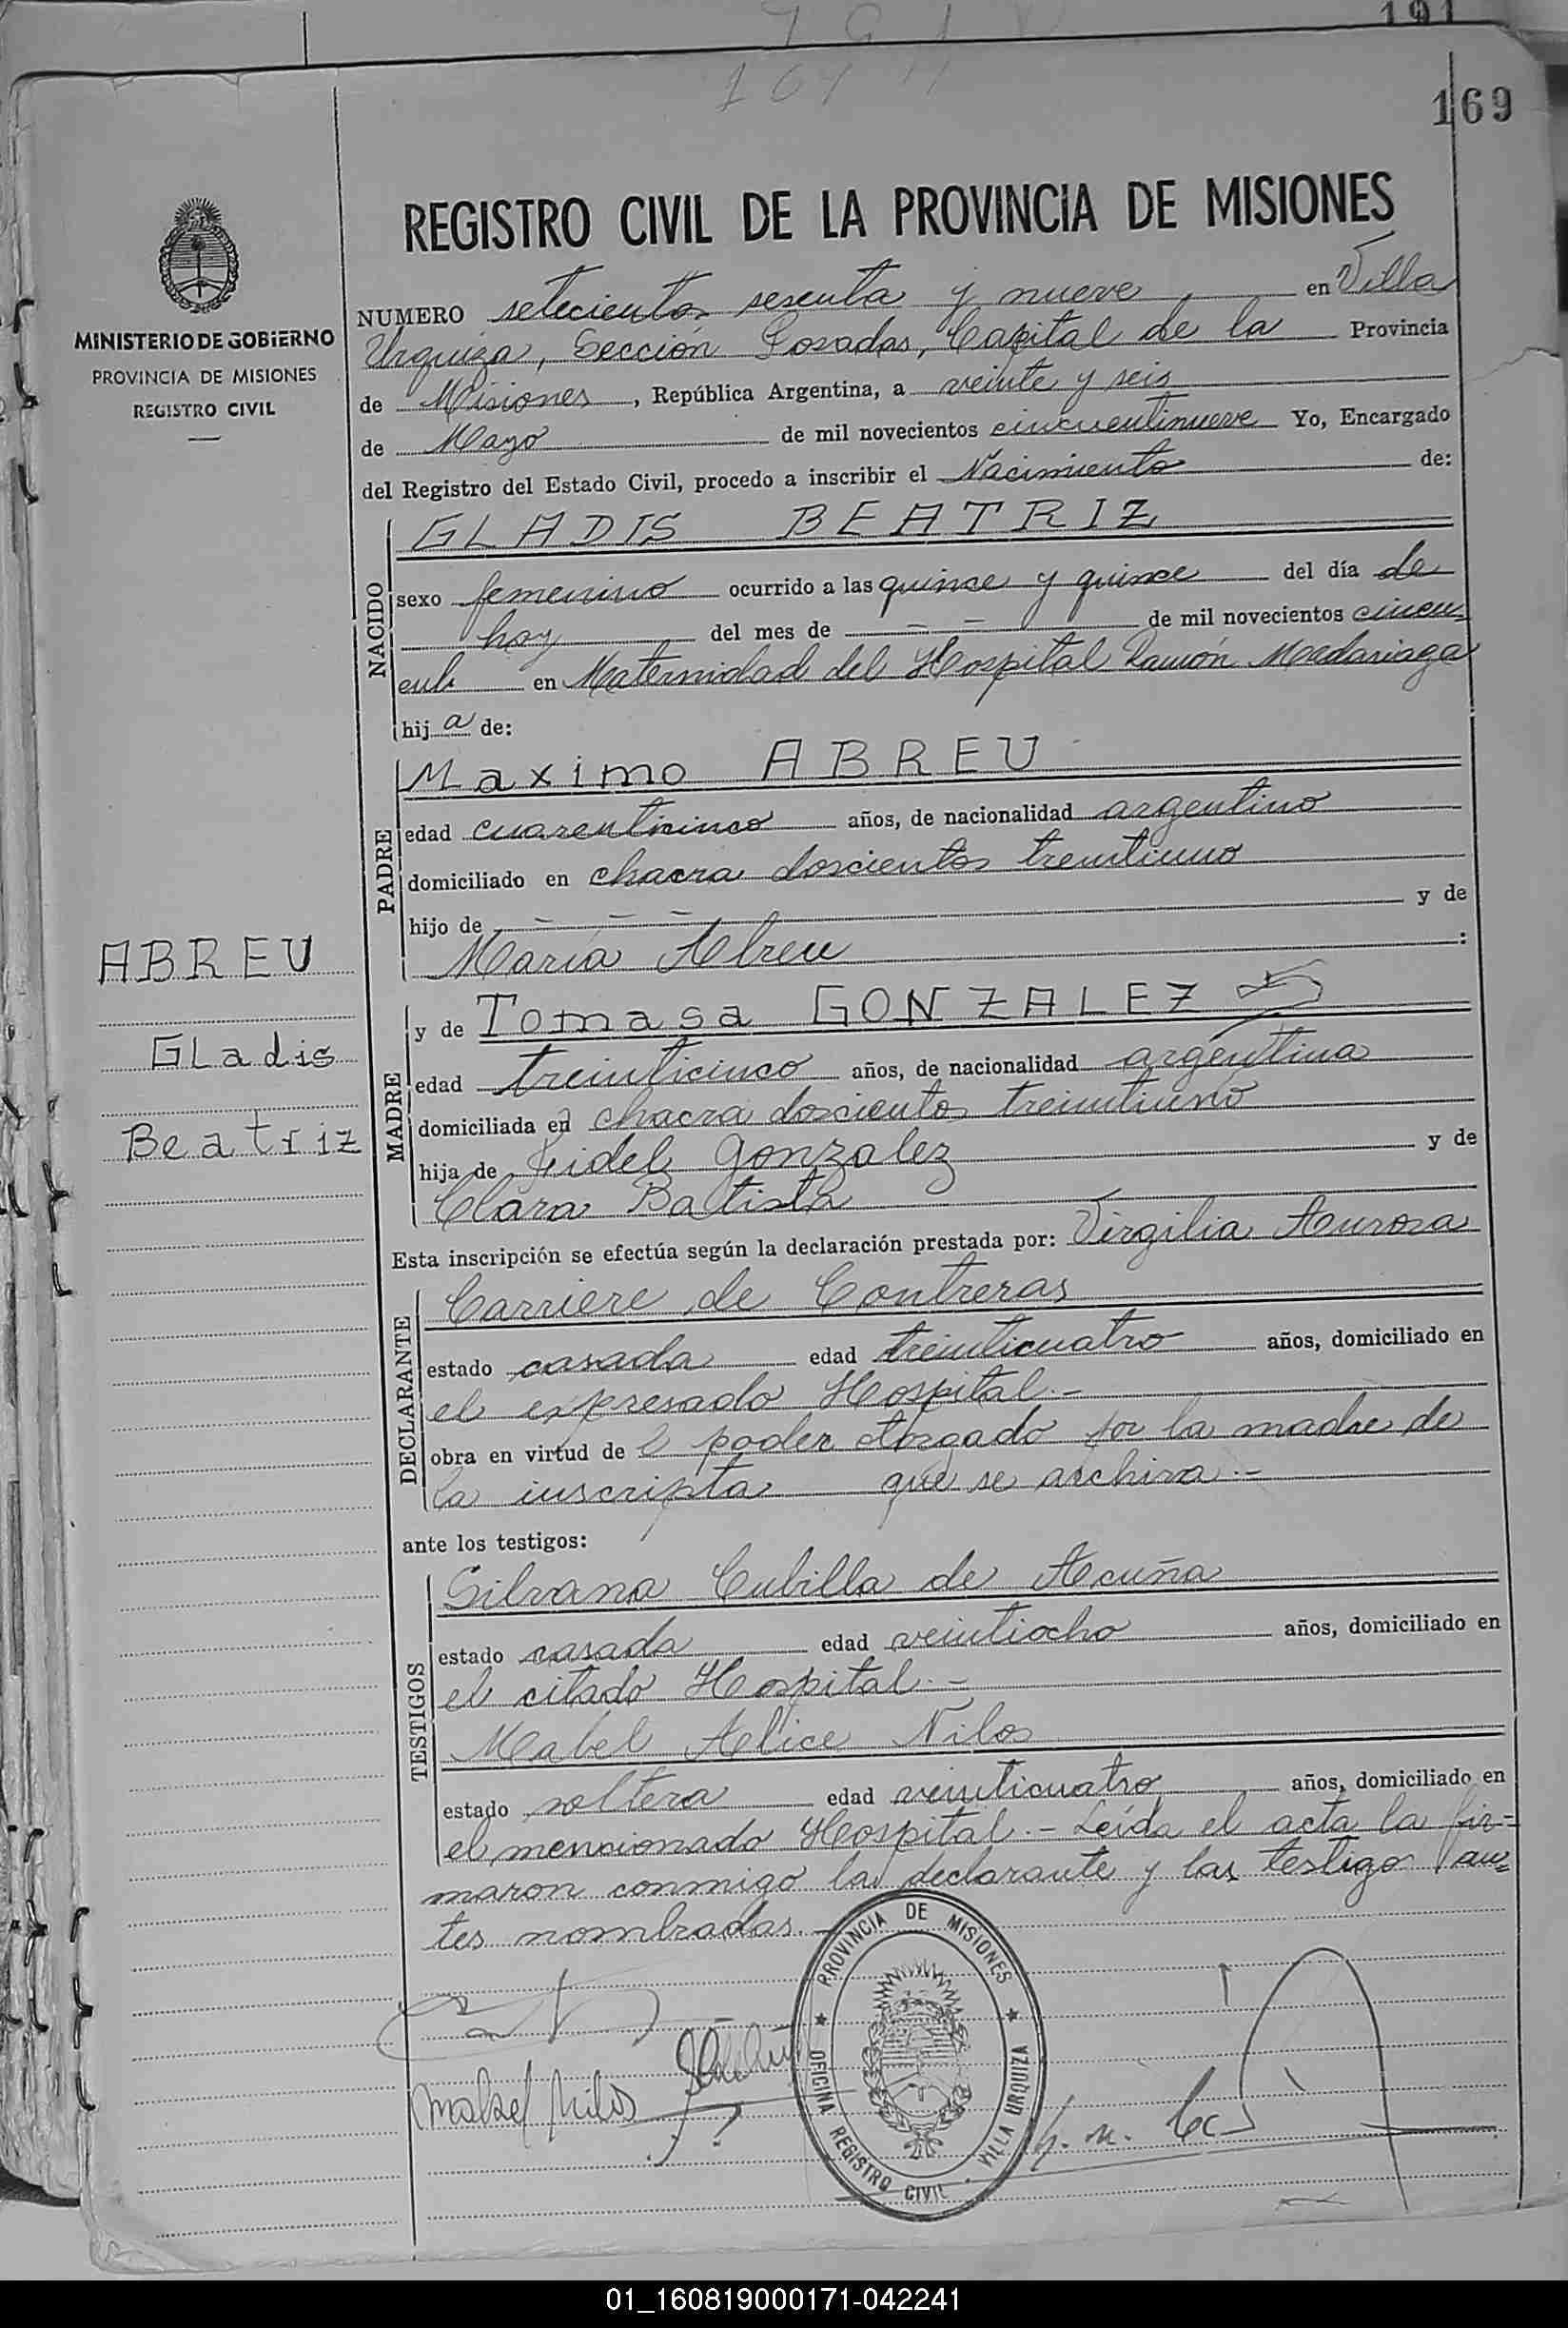 191
169
REGISTRO CIVIL DE LA PROVINCIA DE MISIONES
MINISTERIO DE GOBIERNO
PROVINCIA DE MISIONES
REGISTRO CIVIL
NUMERO setecientos sesenta y nueve en Villa
Urquiza, Sección Posadas, Capital de la Provincia
de Misiones, República Argentina, a veinte y seis
de Mayo de mil novecientos cincuentinueve Yo, Encargado
del Registro del Estado Civil, procedo a inscribir el Nacimiento de:
NACIDO
GLADIS BEATRIZ
sexo femenino ocurrido a las quince y quince del día de
hoy del mes de - - de mil novecientos cincu-
en Maternidad del Hospital Ramón Madariaga
hij a de:
PADRE
Maximo ABREU
edad cuarenticinco años, de nacionalidad argentino
domiciliado en chacra doscientos treintiuno
hijo de - - - y de
María Abreu :
ABREU
Gladis
Beatriz
MADRE
y de Tomasa GONZALEZ
edad treinticinco años, de nacionalidad argentina
domiciliada en chacra doscientos treintiuno
hija de Fidel Gonzalez y de
Clara Batista
Esta inscripción se efectúa según la declaración prestada por: Virgilia Aurora
DECLARANTE
Carriere de Contreras
estado casada edad treinticuatro años, domiciliado en
el expresado Hospital.-
obra en virtud de l poder otorgado por la madre de
la inscripta que se archiva.-
ante los testigos:
TESTIGOS
Silvana Cubilla de Acuña
estado casada edad veintiocho años, domiciliado en
el citado Hospital.-
Mabel Alice Nilos
estado soltera edad veinticuatro años, domiciliado en
el mencionado Hospital.- Leída el acta la fir=
maron conmigo la declarante y las testigo au=
tes nombradas.-
Mabel Nilos
PROVINCIA DE MISIONES
OFICINA REGISTRO CIVIL - VILLA URQUIZA
01_160819000171-042241